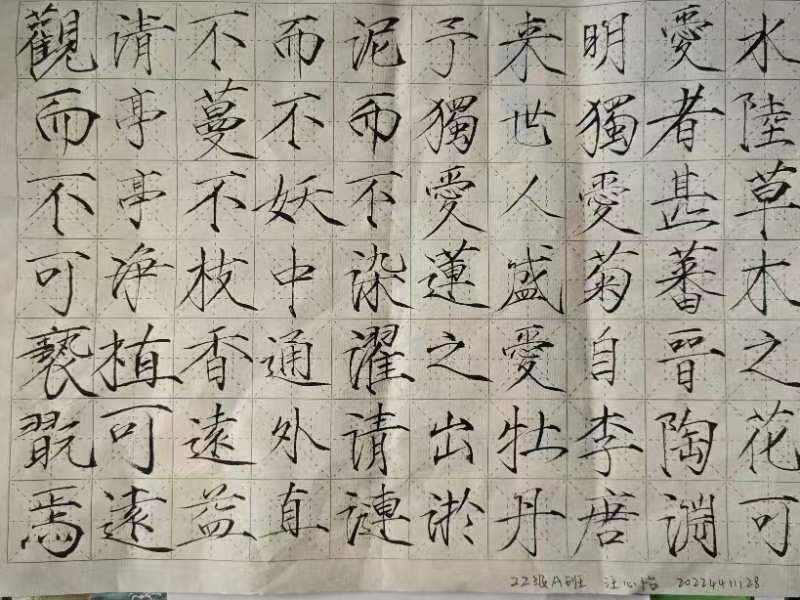 水陸草木之花可
愛者甚蕃晉陶淵
明獨愛菊自李唐
来世人盛愛牡丹
予獨愛蓮之出淤
泥而不染濯清漣
而不妖中通外直
不蔓不枝香遠益
清亭亭净植可遠
觀而不可褻翫焉
22级A班 汪心怡 2022441128